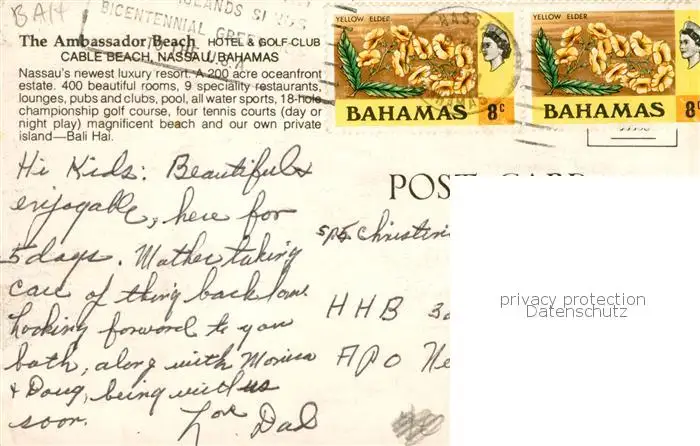 BAH
ISLANDS
BICENTENNIAL
The Ambassador Beach HOTEL & GOLF CLUB
CABLE BEACH, NASSAU/BAHAMAS
Nassau's newest luxury resort. A 200 acre oceanfront
estate. 400 beautiful rooms, 9 speciality restaurants,
lounges, pubs and clubs, pool, all water sports, 18-hole
championship golf course, four tennis courts (day or
night play) magnificent beach and our own private
island—Bali Hai.
YELLOW ELDER
BAHAMAS 8c
YELLOW ELDER
BAHAMAS 8c
POST CARD
Hi Kids: Beautiful &
enjoyable, here for
5 days. Mother taking
care of thing back home
Looking forward to you
both, along with Monica
& Doug, being with us
soon.
Love Dad
SP5 Christin
HHB 3
APO Ne
privacy protection
Datenschutz